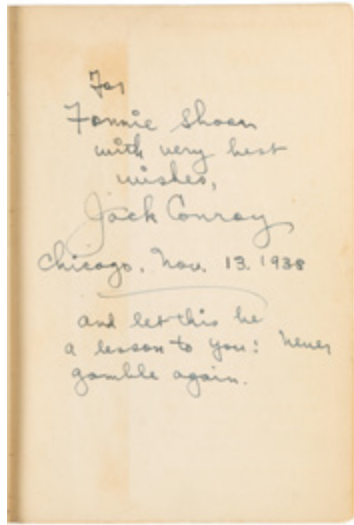 For
Fannie Shoan
with very best
wishes,
Jack Conroy
Chicago, Nov. 13. 1938
and let this be
a lesson to you: never
gamble again.